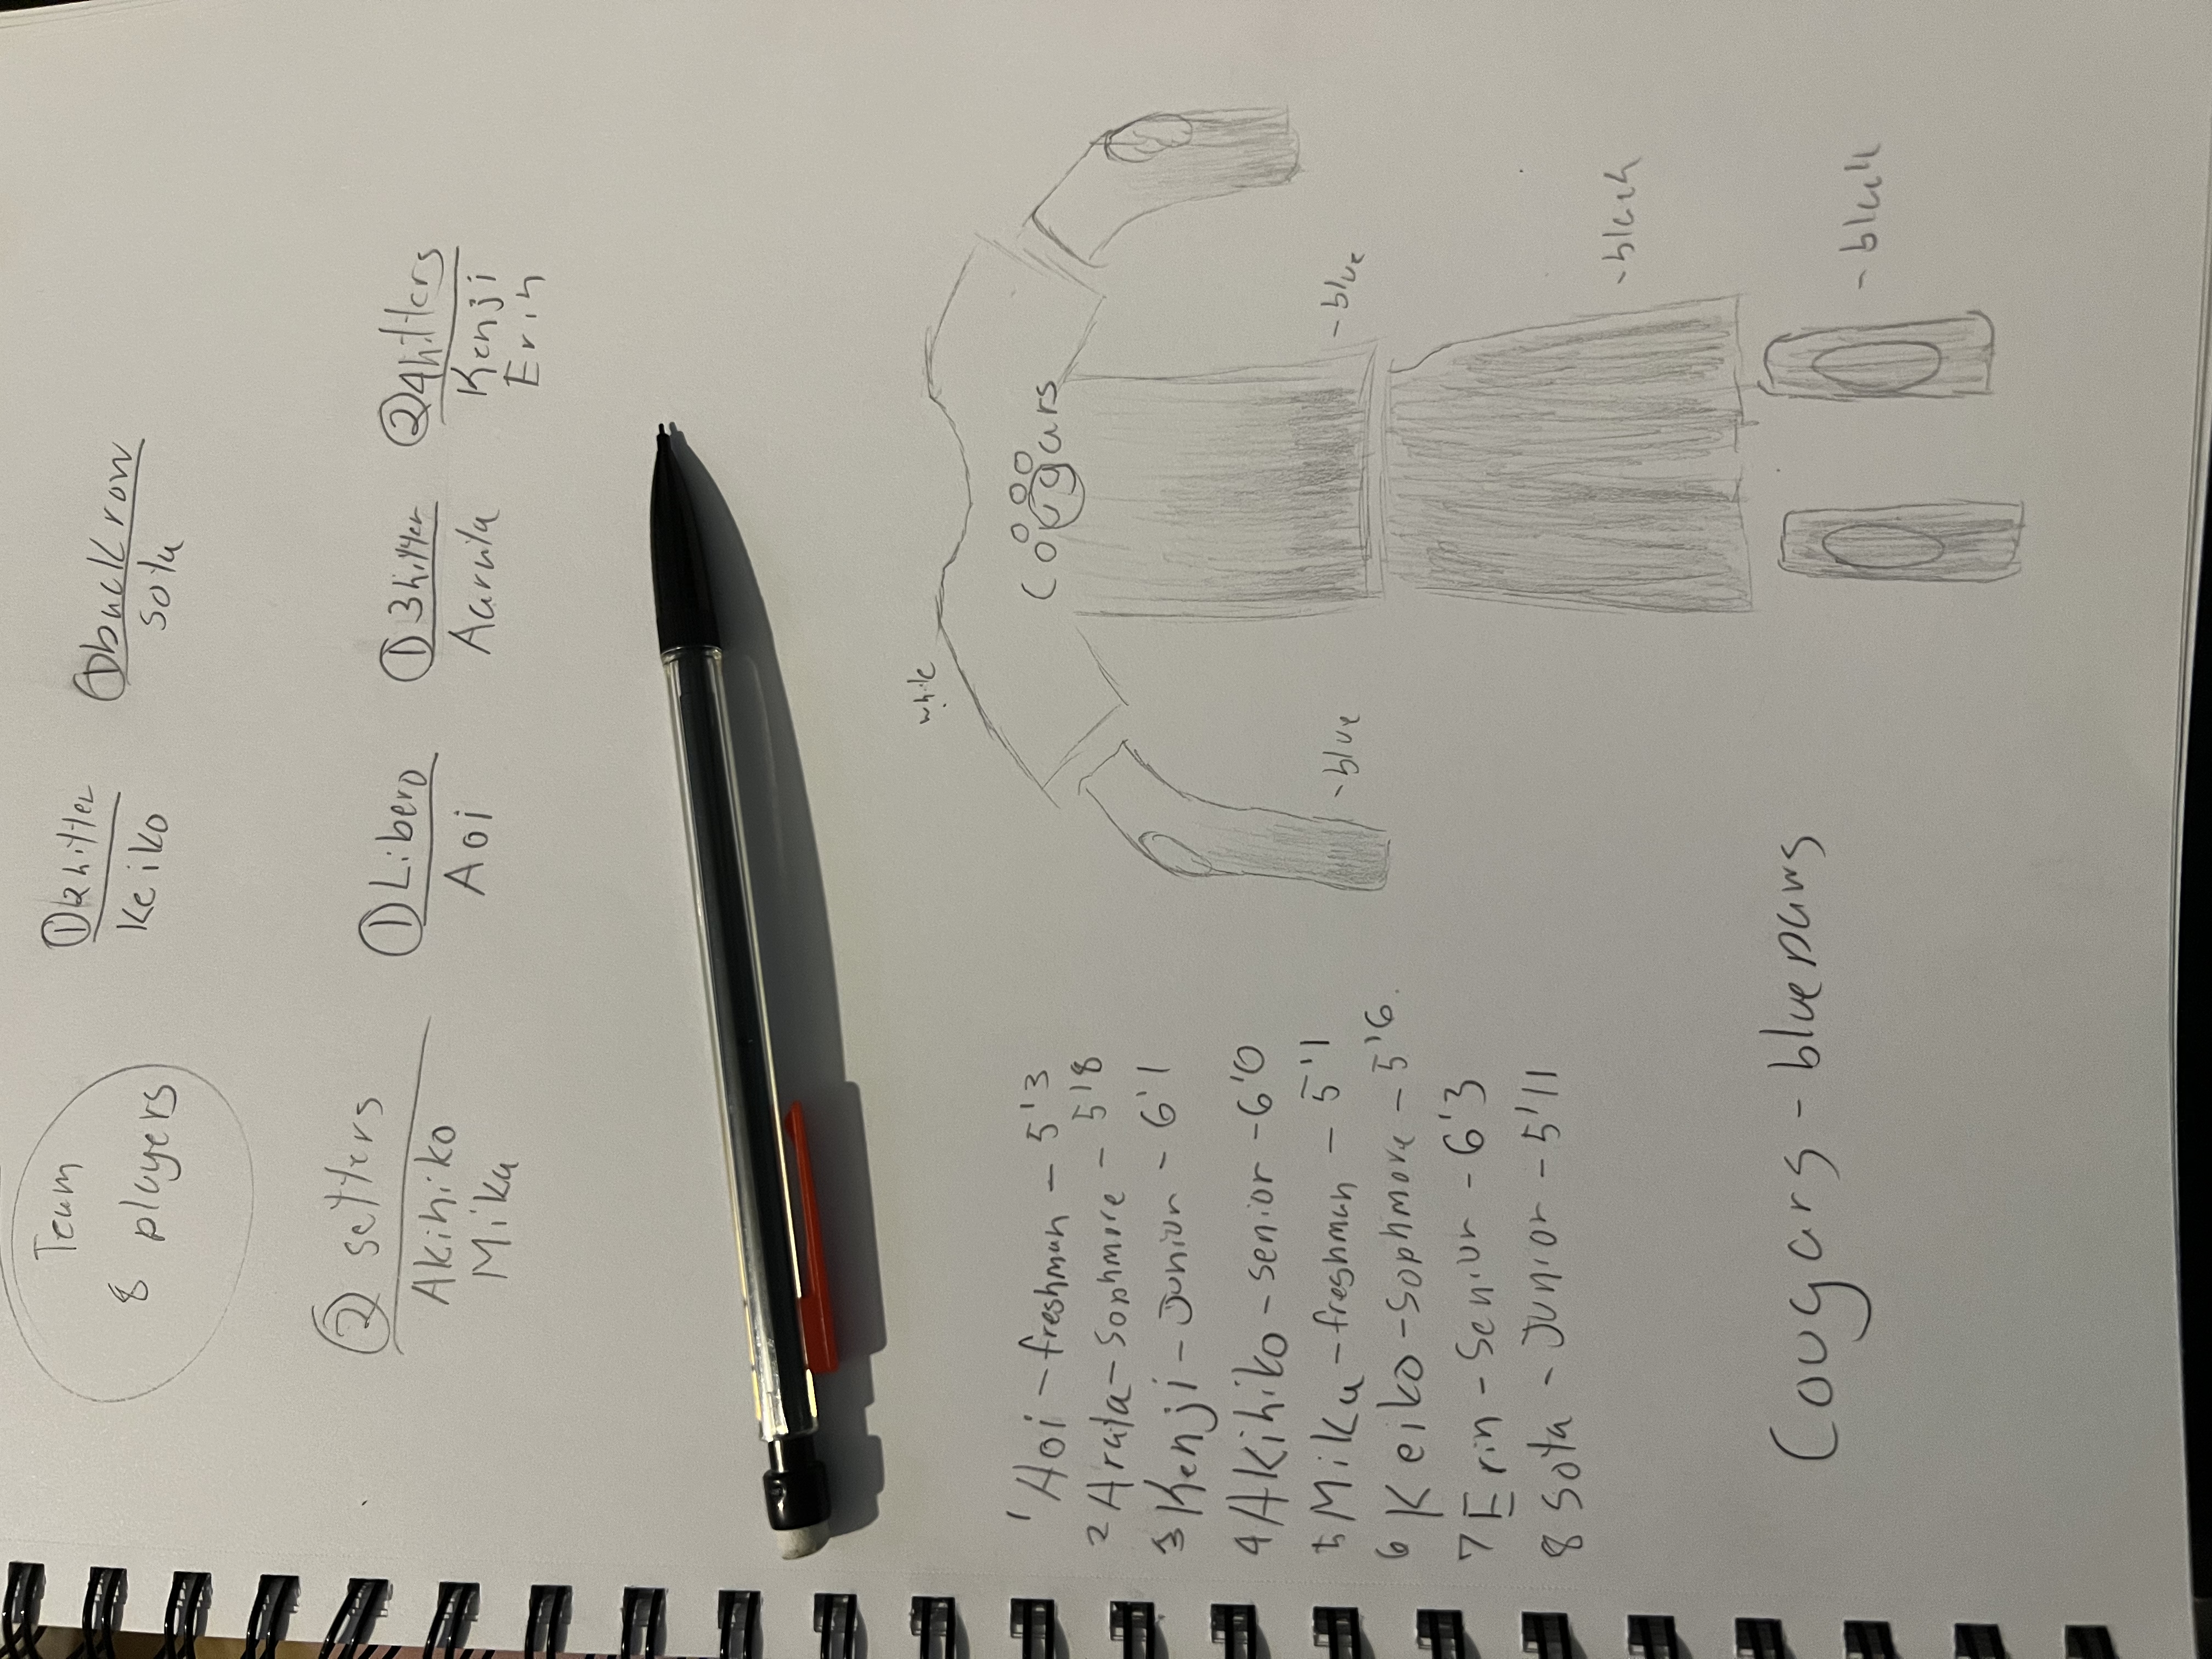 Team
8 players
① 2hitter
Keiko
① back row
Sota
② setters
Akihiko
Mika
① Libero
Aoi
① 3hitter
Aarata
② 4hitters
Kenji
Erin
1 Aoi - freshman - 5'3
2 Arata - Sophmore - 5'8
3 Kenji - Junior - 6'1
4 Akihiko - senior - 6'0
5 Mika - freshman - 5'1
6 Keiko - Sophmore - 5'6
7 Erin - Senior - 6'3
8 Sota - Junior - 5'11
white
Cougars
- blue
- blue
- black
- black
Cougars - blue paws